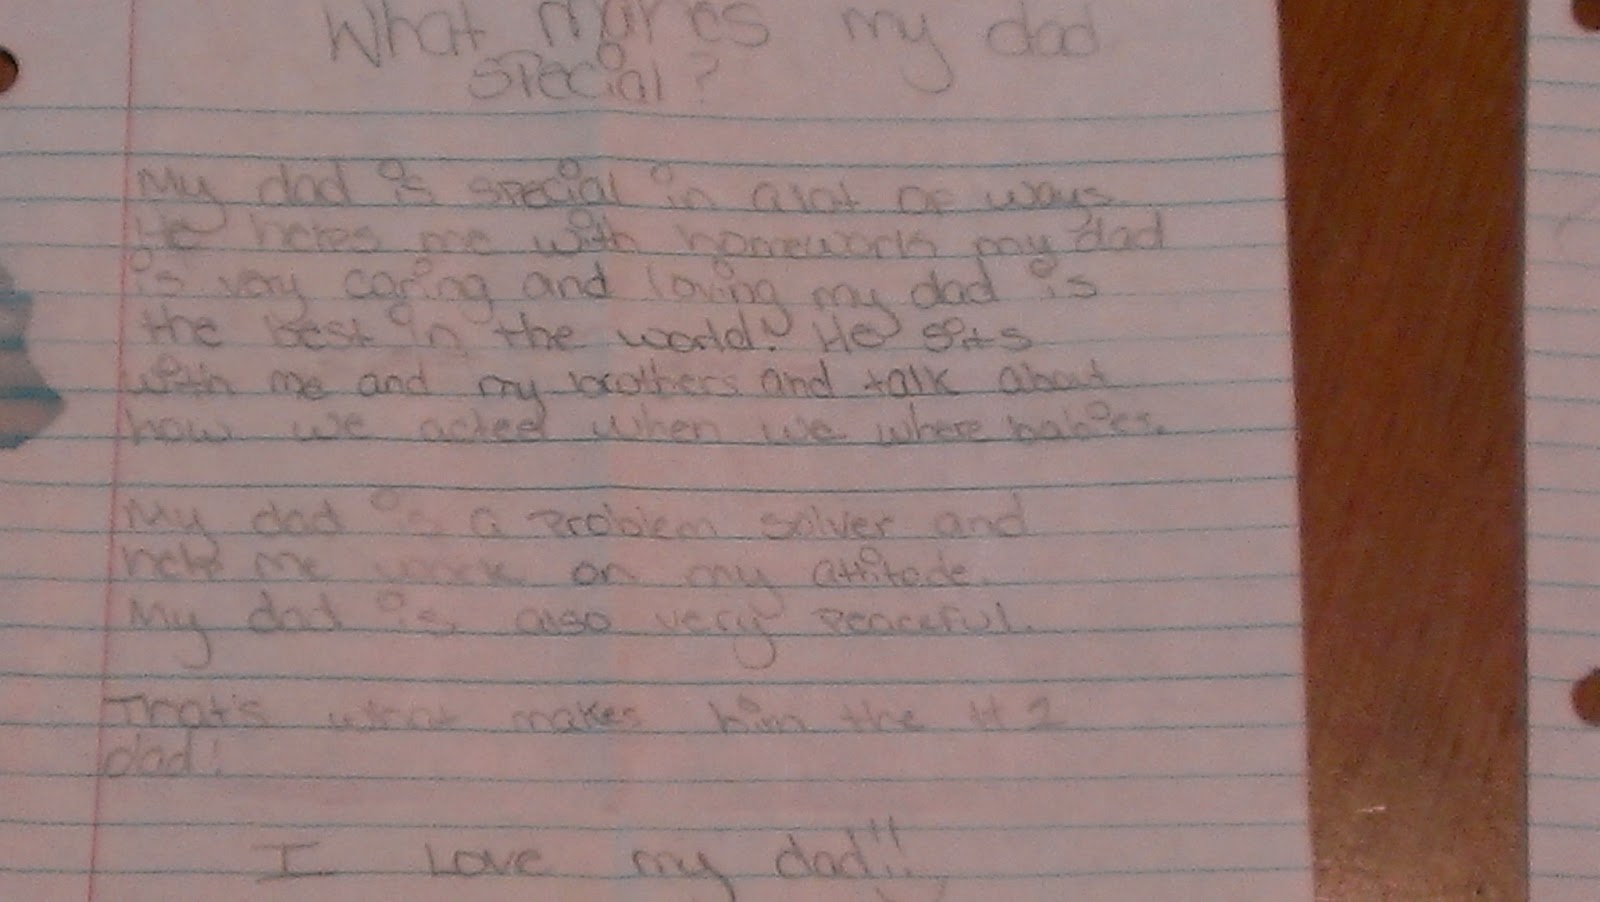 What makes my dad
special?
My dad is special in alot of ways.
He helps me with homework my dad
is very caring and loving my dad is
the best in the world! He sits
with me and my brothers and talk about
how we acted when we where babies.
My dad is a problem solver and
help me work on my attitode.
My dad is also very peaceful.
That's what makes him the #1
dad!
I Love my dad!!